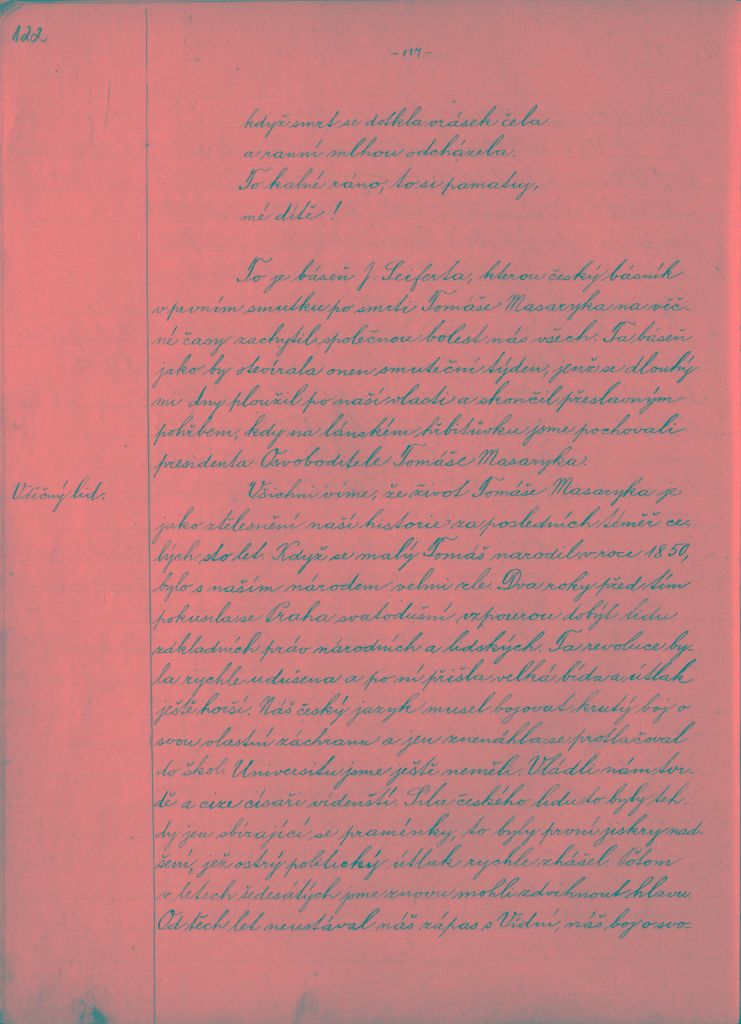 122
- 117 -
když smrt se dotkla vrásek čela
a ranní mlhou odcházela.
To kalné ráno, to si pamatuj,
mé dítě !
To je báseň J. Seiferta, kterou český básník
v prvním smutku po smrti Tomáše Masaryka na věč-
né časy zachytil společnou bolest nás všech. Ta báseň
jako by otevírala onen smuteční týden, jenž se dlouhý
mi dny ploužil po naší vlasti a skončil přeslavným
pohřbem, kdy na lánském hřbitůvku jsme pochovali
presidenta Osvoboditele Tomáše Masaryka.
Vděčný lid.
Všichni víme, že život Tomáše Masaryka je
jako ztělesnění naší historie za posledních téměř ce-
lých sto let. Když se malý Tomáš narodil v roce 1850,
bylo s naším národem velmi zle. Dva roky před tím
pokusila se Praha svatodušní vzpourou dobýt lidu
základních práv národních a lidských. Ta revoluce by-
la rychle udušena a po ní přišla velká bída a útlak
ještě horší. Náš český jazyk musel bojovat krutý boj o
svou vlastní záchranu a jen znenáhla se protlačoval
do škol. Universitu jsme ještě neměli. Vládli nám tvr-
dě a cize císaři vídenští. Síla českého lidu to byly teh
dy jen sbírající se praménky, to byly první jiskry nad-
šení, jež ostrý politický útlak rychle zhášel. Potom
v letech šedesátých jsme znovu mohli zdvihnout hlavu.
Od těch let neustával náš zápas s Vídní, náš boj o svo-